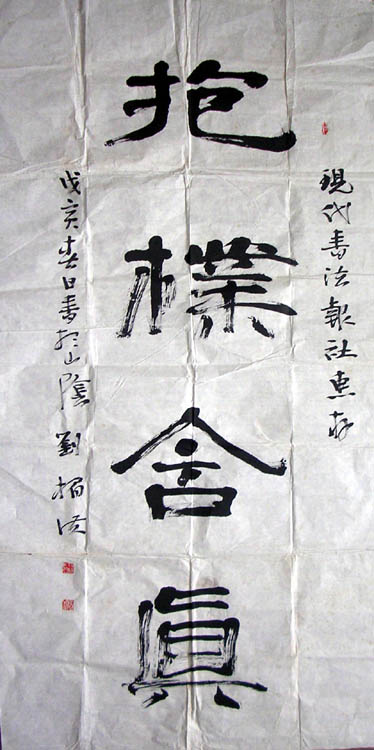 現代書法報社惠存
抱樸含眞
戊亥春日書於山陰劉